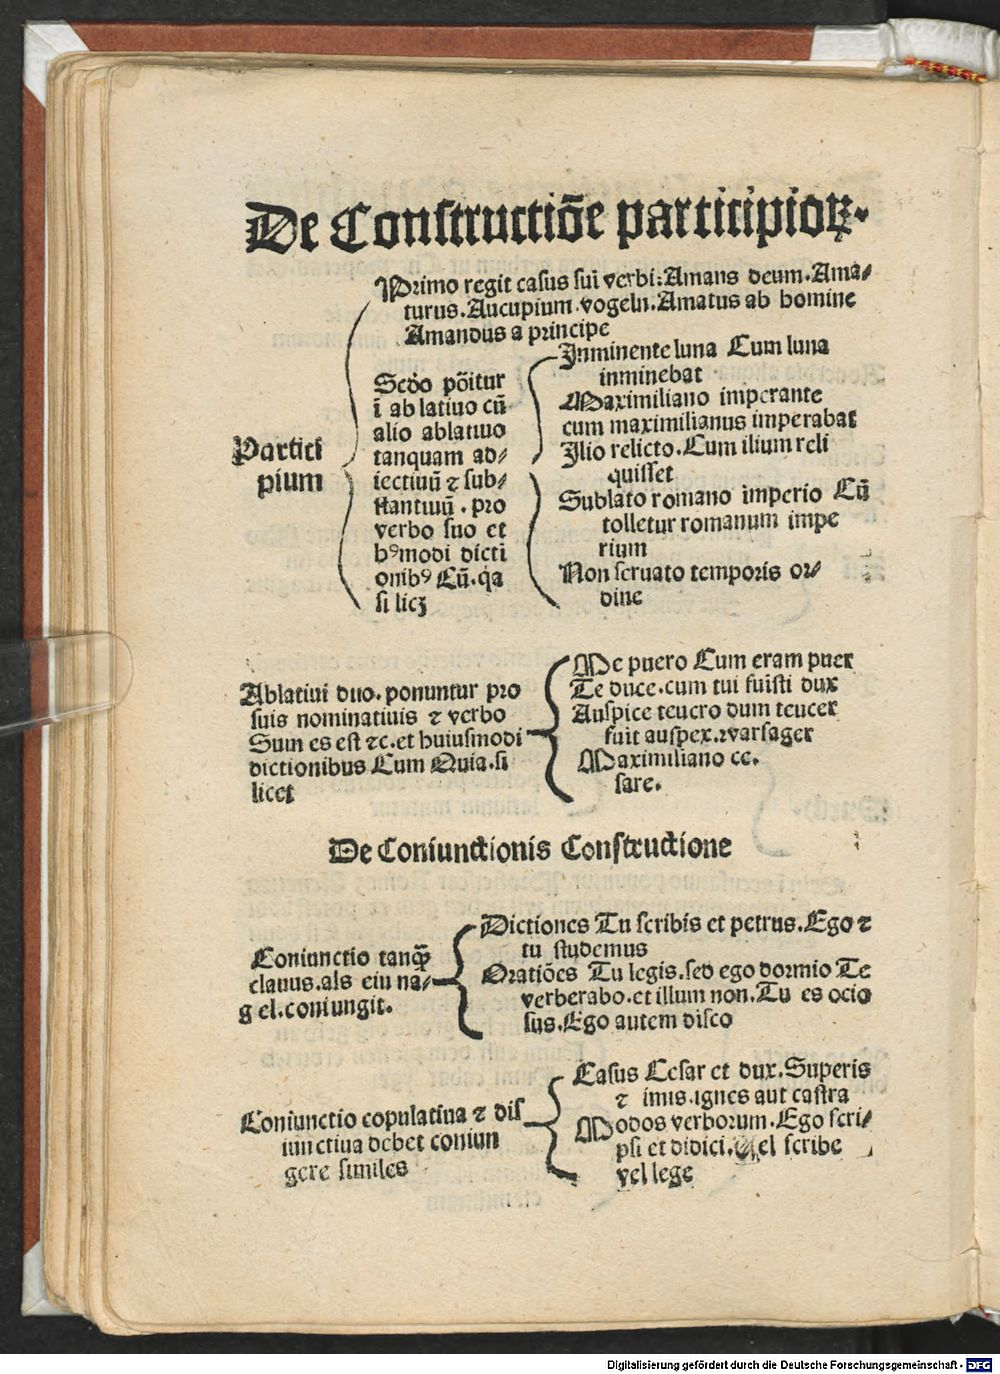 De Constructiõe participioꝝ.
Primo regit casus sui verbi: Amans deum. Ama⸗
turus. Aucupium. vogeln. Amatus ab homine
Amandus a principe
Partici
pium
Scďo põitur
ĩ ablatiuo cũ
alio ablatiuo
tanquam ad⸗
iectiuũ ⁊ sub⸗
stantiuũ. pro
verbo suo et
hꝰmodi dicti
onibꝰ Cũ. q̃a
si licꝫ
Inminente luna Cum luna
inminebat
Maximiliano imperante
cum maximilianus imperabat
Ilio relicto. Cum ilium reli
quisset
Sublato romano imperio Cũ
tolletur romanum impe
rium
Non seruato temporis or⸗
dine
Ablatiui duo. ponuntur pro
suis nominatiuis ⁊ verbo
Sum es est ⁊c. et huiusmodi
dictionibus Cum Quia. si
licet
Me puero Cum eram puer
Te duce. cum tui fuisti dux
Auspice teucro dum teucer
fuit auspex. warsager
Maximiliano ce.
sare.
De Coniunctionis Constructione
Coniunctio tanꝙ̃
clauus. als ein na⸗
gel. coniungit.
Dictiones Tu scribis et petrus. Ego ⁊
tu studemus
Oratiões Tu legis. sed ego dormio Te
verberabo. et illum non. Tu es ocio
sus. Ego autem disco
Coniunctio copulatiua ⁊ dis
iunctiua debet coniun
gere similes
Casus Cesar et dux. Superis
⁊ imis. ignes aut castra
Modos verborum. Ego scri⸗
psi et didici. Vel scribe
vel lege
Digitalisierung gefördert durch die Deutsche Forschungsgemeinschaft - DFG